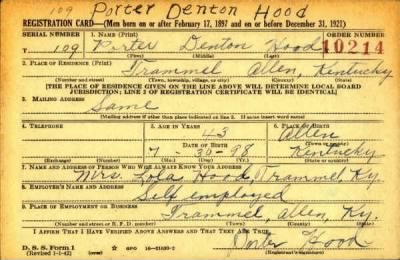 109 Porter Denton Hood
REGISTRATION CARD—(Men born on or after February 17, 1897 and on or before December 31, 1921)
SERIAL NUMBER 1. NAME (Print) ORDER NUMBER
T 109 Porter Denton Hood 10214
(First) (Middle) (Last)
2. PLACE OF RESIDENCE (Print)
Trammel Allen, Kentucky
(Number and street) (Town, township, village, or city) (County) (State)
[THE PLACE OF RESIDENCE GIVEN ON THE LINE ABOVE WILL DETERMINE LOCAL BOARD
JURISDICTION; LINE 2 OF REGISTRATION CERTIFICATE WILL BE IDENTICAL]
3. MAILING ADDRESS
Same
[Mailing address if other than place indicated on line 2. If same insert word same]
4. TELEPHONE 5. AGE IN YEARS 6. PLACE OF BIRTH
43 Allen
DATE OF BIRTH (Town or county)
7 - 30 - 98 Kentucky
(Exchange) (Number) (Mo.) (Day) (Yr.) (State or country)
7. NAME AND ADDRESS OF PERSON WHO WILL ALWAYS KNOW YOUR ADDRESS
Mrs. Hood, Trammel Ky.
8. EMPLOYER'S NAME AND ADDRESS
Self employed
9. PLACE OF EMPLOYMENT OR BUSINESS
Trammel, Allen, Ky.
(Number and street or R. F. D. number) (Town) (County) (State)
I AFFIRM THAT I HAVE VERIFIED ABOVE ANSWERS AND THAT THEY ARE TRUE.
D. S. S. Form 1
(Revised 1-1-42) GPO 16—21630-2 Porter Hood
(Registrant's signature)